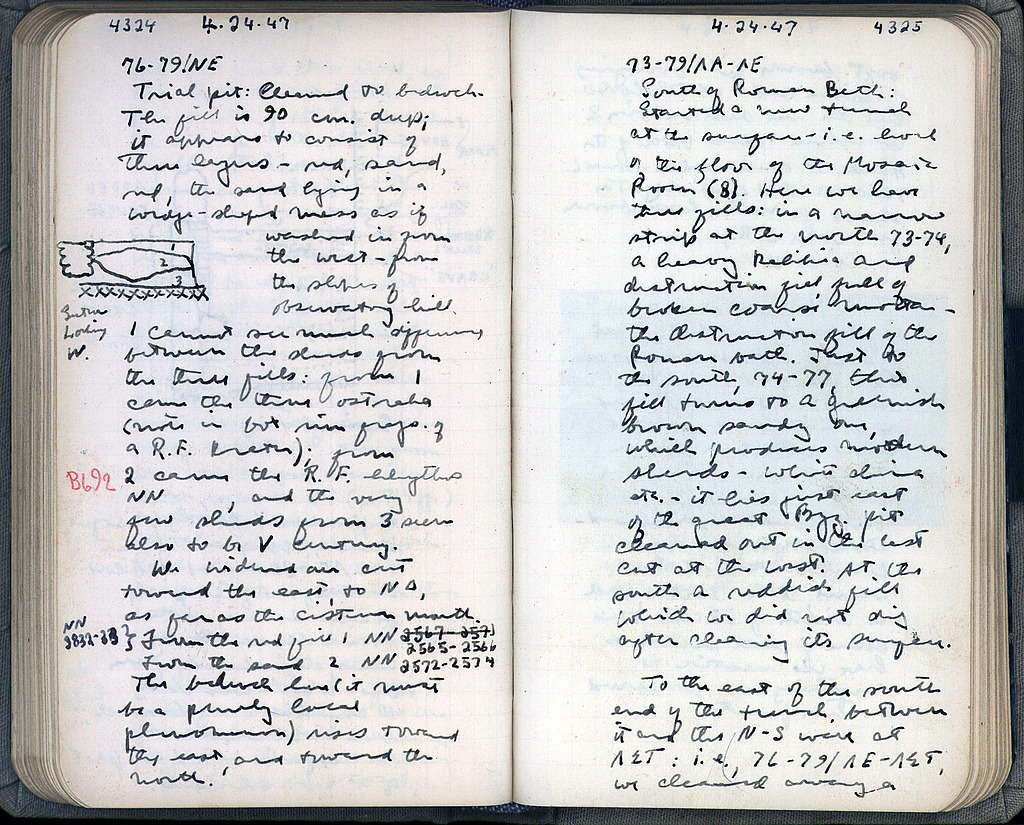 4324 4.24.47
76-79/NE
Trial pit: Cleaned to bedrock.
The fill is 90 cm. deep;
it appears to consist of
three layers - red, sand,
red, the sand lying in a
wedge-shaped mass as if
washed in from
the west - from
the slopes of
observatory hill.
1
2
3
Section
Looking
W.
I cannot see much difference
between the sherds from
the three fills: from 1
came the three ostraka
(note in box rim frags. of
a R.F. krater); from
B692
2 came the R.F. lekythos
NN , and the very
few sherds from 3 seem
also to be V century.
We widened our cut
toward the east, to NΔ,
as far as the cistern mouth.
NN
From the red fill 1 NN 2567-2571
2565-2566
From the sand 2 NN 2572-2574
The bedrock here (it must
be a purely local
phenomenon) rises toward
the east, and toward the
north.
4.24.47 4325
73-79/ΛΑ-ΛΕ
South of Roman Bath:
Started a new trench
at the surface - i.e. level
of the floor of the Mosaic
Room (8). Here we have
three fills: in a narrow
strip at the north 73-74,
a heavy and
destruction fill full of
broken coarse mortar -
the destruction fill of the
Roman bath. Just to
the south, 74-77, this
fill turns to a greenish
brown sandy one,
which produces modern
sherds - white china
etc. - it lies just east
of the great Byz. pit
cleaned out in the last
cut at the west. At the
south a reddish fill
which we did not dig
after cleaning its surface.
To the east of the south
end of the trench, between
it and the N-S wall at
ΛΣΤ: i.e., 76-79/ΛΕ-ΛΣΤ,
we cleaned away a